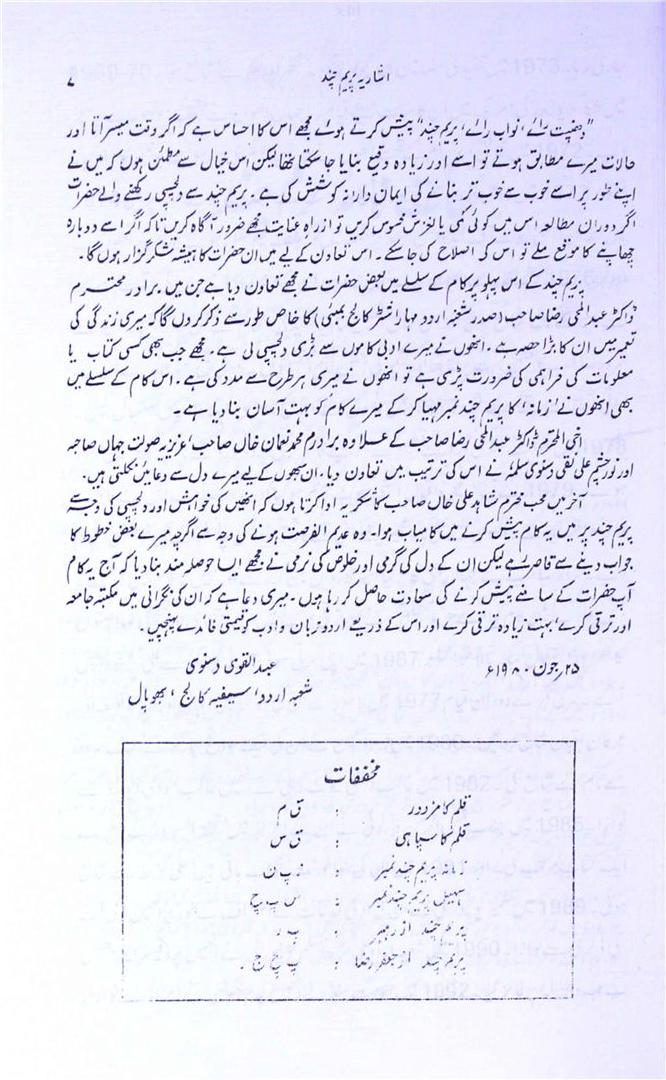 اشاریہ پریم چند
۷
"دھنپت رائے، نواب رائے، پریم چند" پیش کرتے ہوئے مجھے اس کا احساس ہے کہ اگر وقت میسر آتا اور
حالات میرے مطابق ہوتے تو اسے اور زیادہ وقیع بنایا جا سکتا تھا لیکن اس خیال سے مطمئن ہوں کہ میں نے
اپنے طور پر اسے خوب سے خوب تر بنانے کی ایمان دارانہ کوشش کی ہے۔ پریم چند سے دلچسپی رکھنے والے حضرات
اگر دوران مطالعہ اس میں کوئی کمی یا لغزش محسوس کریں تو از راہِ عنایت مجھے ضرور آگاہ کریں تاکہ اگر اسے دوبارہ
چھاپنے کا موقع ملے تو اس کی اصلاح کی جا سکے۔ اس تعاون کے لیے میں ان حضرات کا ہمیشہ شکر گزار ہوں گا۔
پریم چند کے اس پہلو پر کام کے سلسلے میں بعض حضرات نے مجھے تعاون دیا ہے جن میں برادر محترم
ڈاکٹر عبدالحئی رضا صاحب (صدر شعبہ اردو مہاراشٹر کالج بمبئی) کا خاص طور سے ذکر کروں گا کہ میری زندگی کی
تعمیر میں ان کا بڑا حصہ ہے۔ انھوں نے میرے ادبی کاموں سے بڑی دلچسپی لی ہے۔ مجھے جب بھی کسی کتاب یا
معلومات کی فراہمی کی ضرورت پڑی ہے تو انھوں نے میری ہر طرح سے مدد کی ہے۔ اس کام کے سلسلے میں
بھی انھوں نے 'زمانہ' کا پریم چند نمبر مہیا کر کے میرے کام کو بہت آسان بنا دیا ہے۔
اخی المحترم ڈاکٹر عبدالحئی رضا صاحب کے علاوہ برادرم محمد نعمان خاں صاحب، عزیزہ صولت جہاں صاحبہ
اور نورچشم علی نقی دسنوی سلمہٗ نے اس کی ترتیب میں تعاون دیا۔ ان سبھوں کے لیے میرے دل سے دعائیں نکلتی ہیں۔
آخر میں محب محترم شاہد علی خاں صاحب کا شکریہ ادا کرتا ہوں کہ انھیں کی خواہش اور دلچسپی کی وجہ سے
پریم چند پر میں یہ کام پیش کرنے میں کامیاب ہوا۔ وہ عدیم الفرصت ہونے کی وجہ سے اگرچہ میرے بعض خطوط کا
جواب دینے سے قاصر رہے لیکن ان کے دل کی گرمی اور خلوص کی نرمی نے مجھے ایسا حوصلہ مند بنا دیا کہ آج یہ کام
آپ حضرات کے سامنے پیش کرنے کی سعادت حاصل کر رہا ہوں۔ میری دعا ہے کہ ان کی نگرانی میں مکتبہ جامعہ
اور ترقی کرے، بہت زیادہ ترقی کرے اور اس کے ذریعے اردو زبان و ادب کو قیمتی فائدے پہنچیں۔
۲۵ جون ۱۹۸۰ء عبدالقوی دسنوی
شعبہ اردو، سیفیہ کالج، بھوپال
مخففات
قلم کا مزدور : ق م
قلم کا سپاہی : ق س
زمانہ پریم چند نمبر : ز پ ن
سہیل پریم چند نمبر : س پ چ
پریم چند از
پریم چند از جعفر رضا : پ چ ج